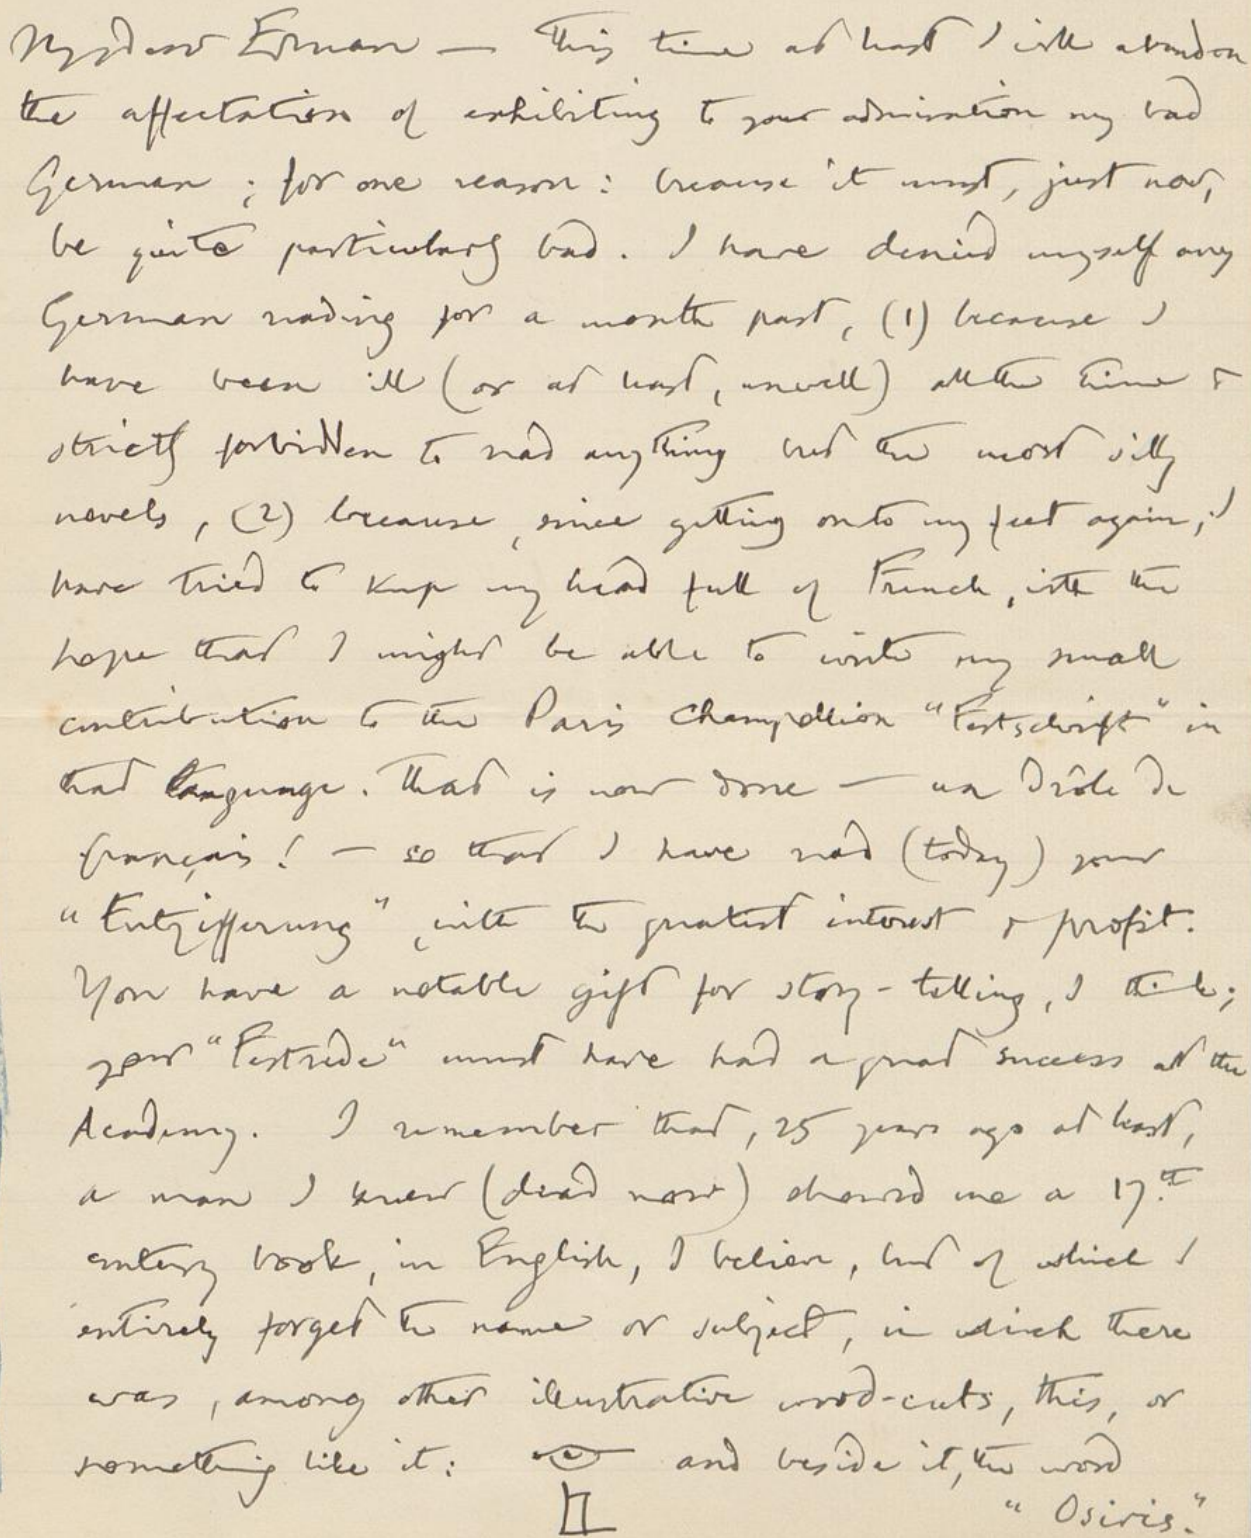 My dear Erman — This time at least I will abandon
the affectation of exhibiting to your admiration my bad
German ; for one reason : because it must, just now,
be quite particularly bad. I have denied myself any
German reading for a month past, (1) because I
have been ill (or at least, unwell) all the time &
strictly forbidden to read anything but the most silly
novels, (2) because, since getting onto my feet again, I
have tried to keep my head full of French, with the
hope that I might be able to write my small
contribution to the Paris Champollion "Festschrift" in
that language. That is now done — un drôle de
français! — so that I have read (today) your
"Entzifferung", with the greatest interest & profit.
You have a notable gift for story-telling, I think;
your "Festrede" must have had a great success at the
Academy. I remember that, 25 years ago at least,
a man I knew (dead now) showed me a 17th
century book, in English, I believe, but of which I
entirely forget the name or subject, in which there
was, among other illustrative wood-cuts, this, or
something like it: and beside it, the word
"Osiris."